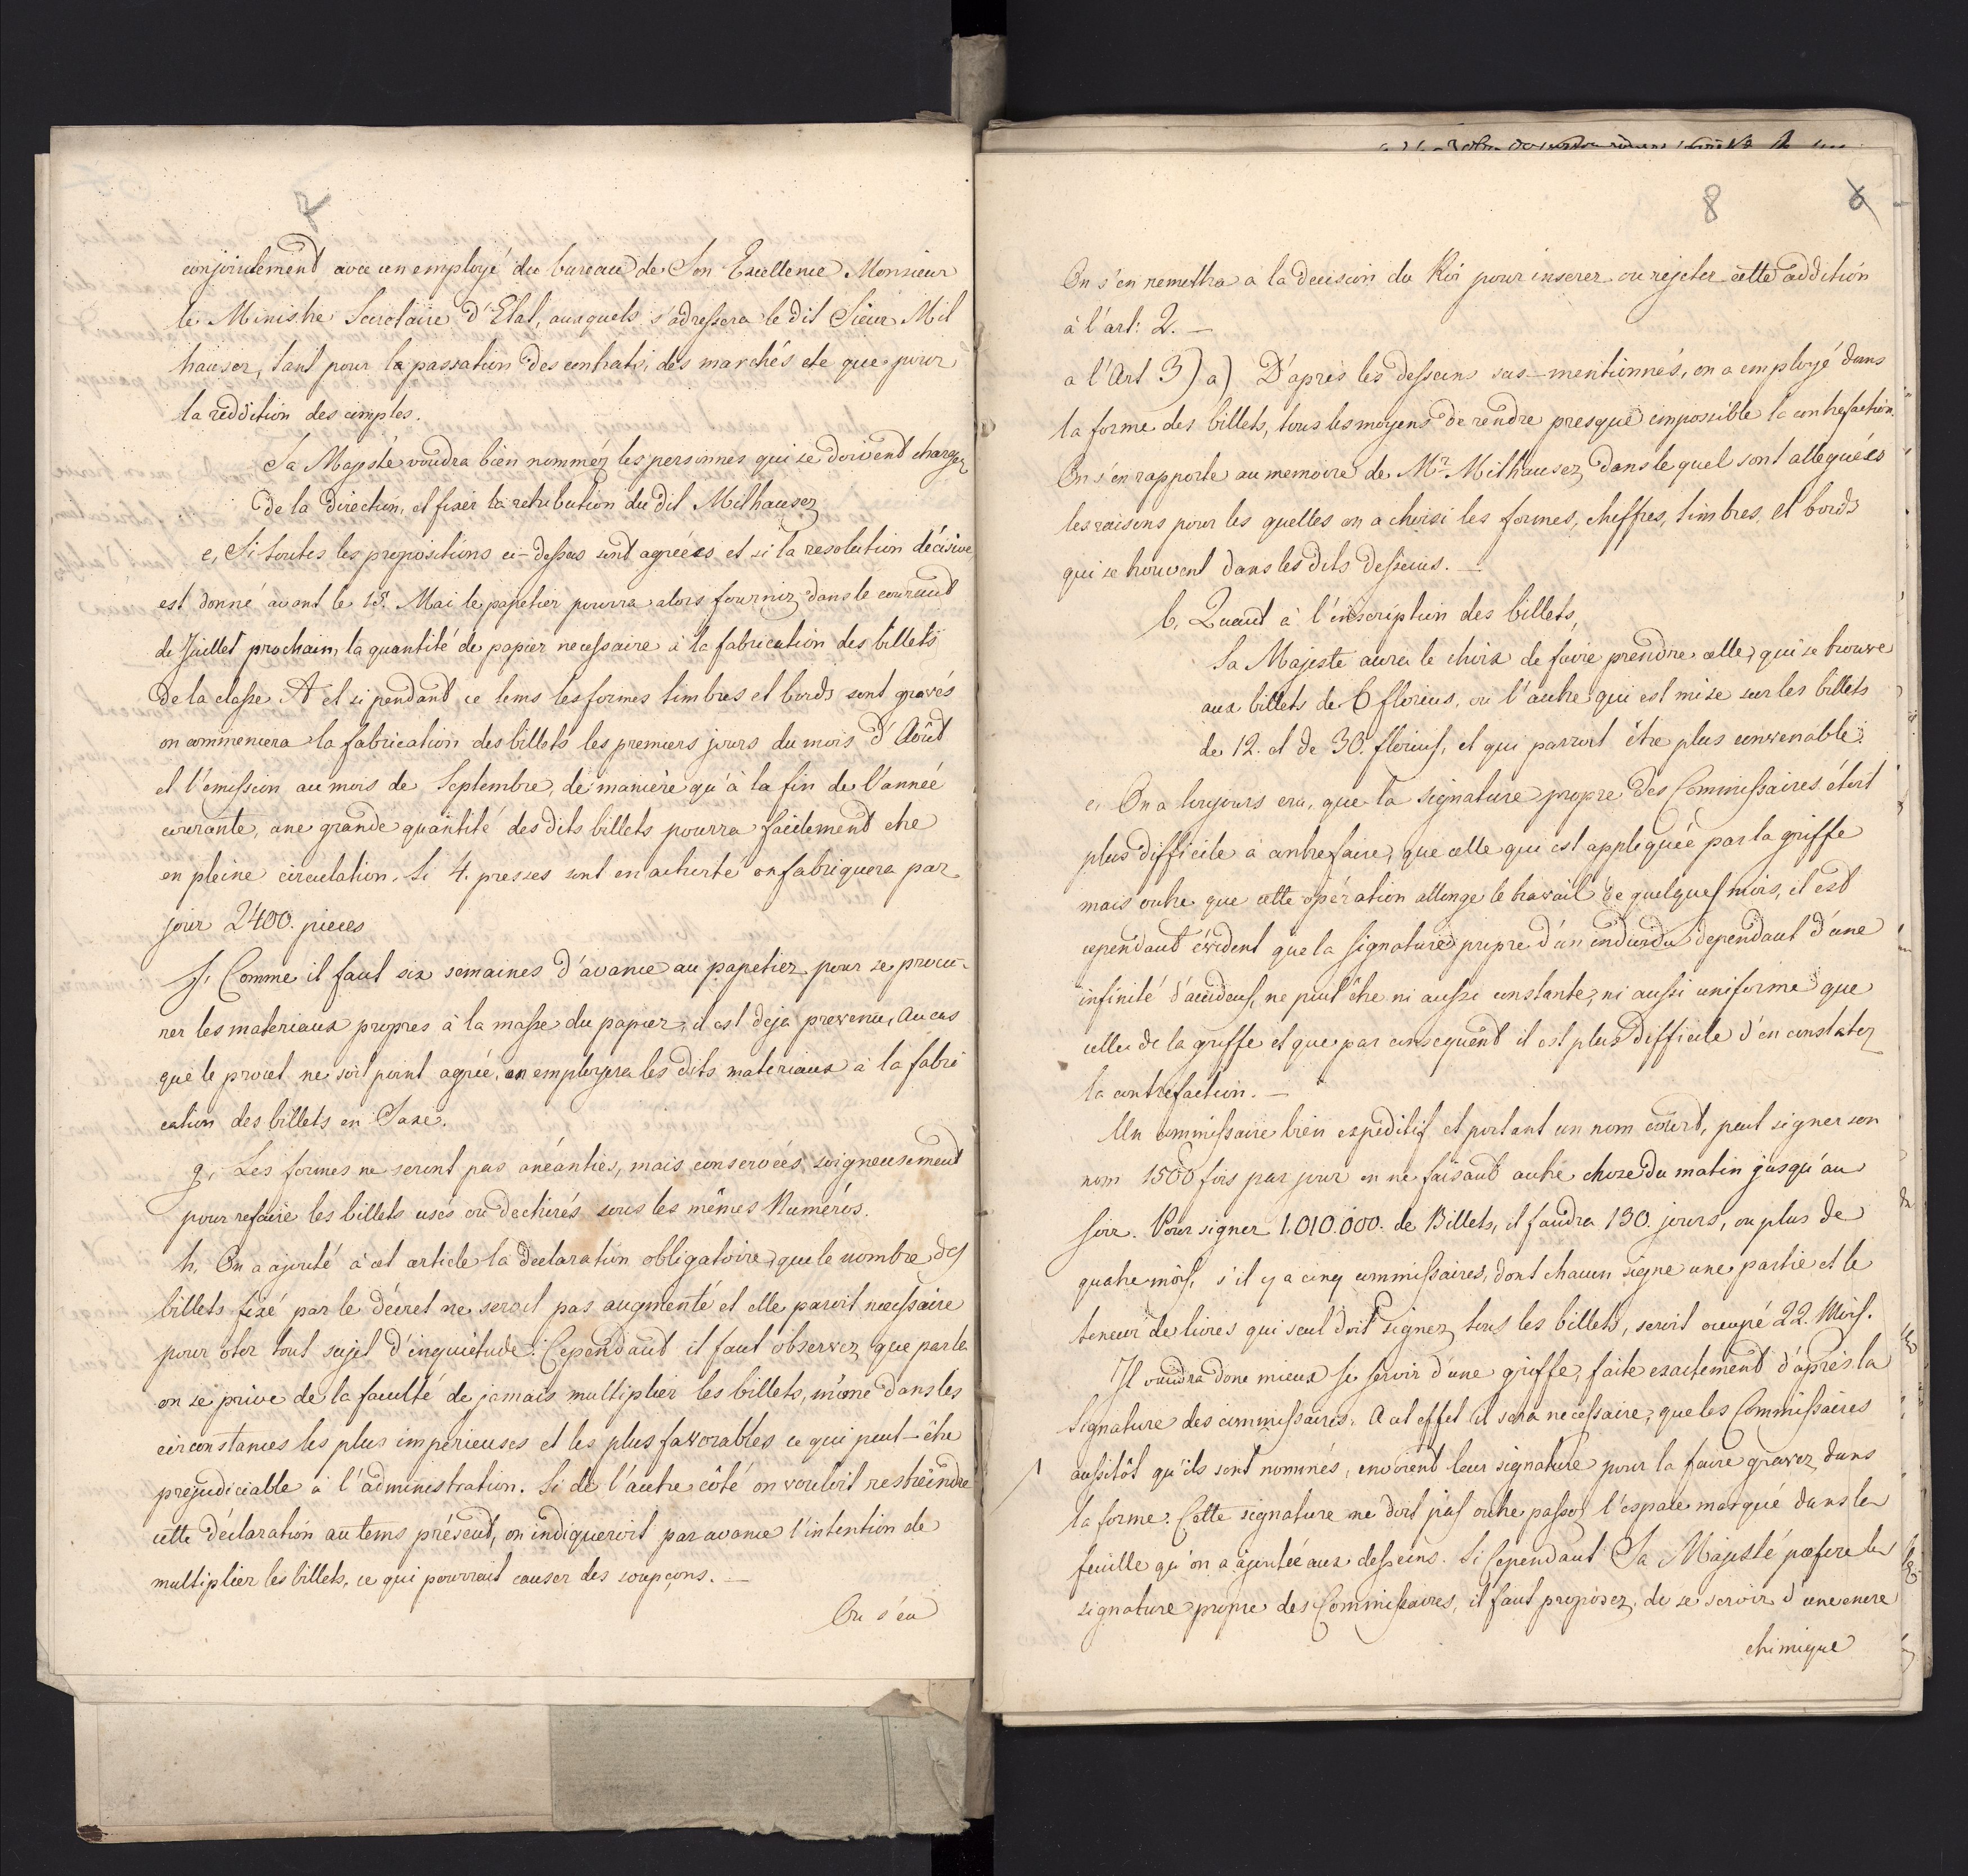 7
conjointement avec un employé du bureau de Son Excellence Monsieur
le Ministre Secrétaire d'Etat, auxquels s'adressera le dit Sieur Mil
hauser, tant pour la passation des contrats, des marchés etc que pour
la reddition des comptes.
Sa Majesté voudra bien nommér les personnes qui se doivent charger
de la direction, et fixer la retribution du dit Milhauser
e, Si toutes les propositions ci-dessus sont agreées et si la resolution décisive
est donné avant le 15. Mai le papetier pourra alors fournir dans le courant
de Juillet prochain, la quantité de papier necessaire à la fabrication des billets
de la classe A et si pendant ce tems les formes timbres et bords sont gravés
on commencera la fabrication des billets les premiers jours du mois d'Août
et l'émission au mois de Septembre, de manière qu'à la fin de l'année
courante, une grande quantité des dits billets pourra facilement etre
en pleine circulation. Si 4. presses sont en activité on fabriquera par
jour 2400. pieces
f, Comme il faut six semaines d'avance au papetier pour se procu-
rer les materiaux propres à la masse du papier, il est deja prevenu, Au cas
que le projet ne soit point agréé, on employera les dits materiaux à la fabri
cation des billets en Saxe.
g, Les formes ne seront pas anéanties, mais conservées soigneusement
pour refaire les billets usés ou dechirés sous les mêmes Numéros.
h, On a ajouté à cet article la declaration obligatoire, que le nombre des
billets fixé par le décret ne seroit pas augmenté et elle paroit necessaire
pour oter tout sujet d'inquietude. Cependant il faut observer que par la
on se prive de la faculté de jamais multiplier les billets, même dans les
circonstances les plus impérieuses et les plus favorables ce qui peut-être
prejudiciable à l'administration. Si de l'autre côté on vouloit restreindre
cette déclaration au tems présent, on indiqueroit par avance l'intention de
multiplier les billets, ce qui pourroit causer des soupçons. —
On s'en
8
6
On s'en remettra à la decision du Roi pour inserer ou rejeter cette addition
à l'art: 2. —
a l'Art 3) a) D'après les desseins sus-mentionnés, on a employé dans
la forme des billets, tous les moyens de rendre presque impossible la contrefaction.
On s'en rapporte au memoire de Mr. Milhauser, dans lequel sont alleguées
les raisons pour les quelles on a choisi les formes, chiffres, timbres, et bords
qui se trouvent dans les dits desseins. —
b, Quant à l'inscription des billets,
Sa Majesté aura le choix de faire prendre celle, qui se trouve
aux billets de 6 florins, ou l'autre qui est mise sur les billets
de 12. et de 30. florins, et qui paroit être plus convenable.
c, On a toujours cru, que la signature propre des Commissaires étoit
plus difficile à contrefaire, que celle qui est appliquée par la griffe
mais outre que cette opération allonge le travail de quelques mois, il est
cependant évident que la signature propre d'un individu dependant d'une
infinité d'accidens, ne peut être ni aussi constante, ni aussi uniforme que
celle de la griffe et que par consequent il est plus difficile d'en constater
la contrefaction. —
Un commissaire bien expeditif et portant un nom court, peut signer son
nom 1500 fois par jour en ne faisant autre chose du matin jusqu'au
soir. Pour signer 1.010.000. de Billets, il faudra 130. jours, ou plus de
quatre mois, s'il y a cinq commissaires, dont chacun signe une partie et le
teneur de livres qui seul doit signer tous les billets, seroit occupé 22. Mois.
Il vaudra donc mieux se servir d'une griffe, faite exactement d'après la
signature des commissaires. A cet effet il sera necessaire, que les Commissaires
aussitôt qu'ils sont nommés, envoient leur signature pour la faire graver dans
la forme. Cette signature ne doit pas outre passer l'espace marqué dans la
feuille qu'on a ajoutée aux desseins. Si Cependant Sa Majesté prefere la
signature propre des Commissaires, il faut proposer, de se servir d'une encre
chimique